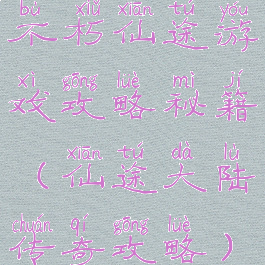 bù xiǔ xiān tú yóu
不朽仙途游
xì gōng lüè mì jí
戏攻略秘籍
xiān tú dà lù
（仙途大陆
chuán qí gōng lüè
传奇攻略）